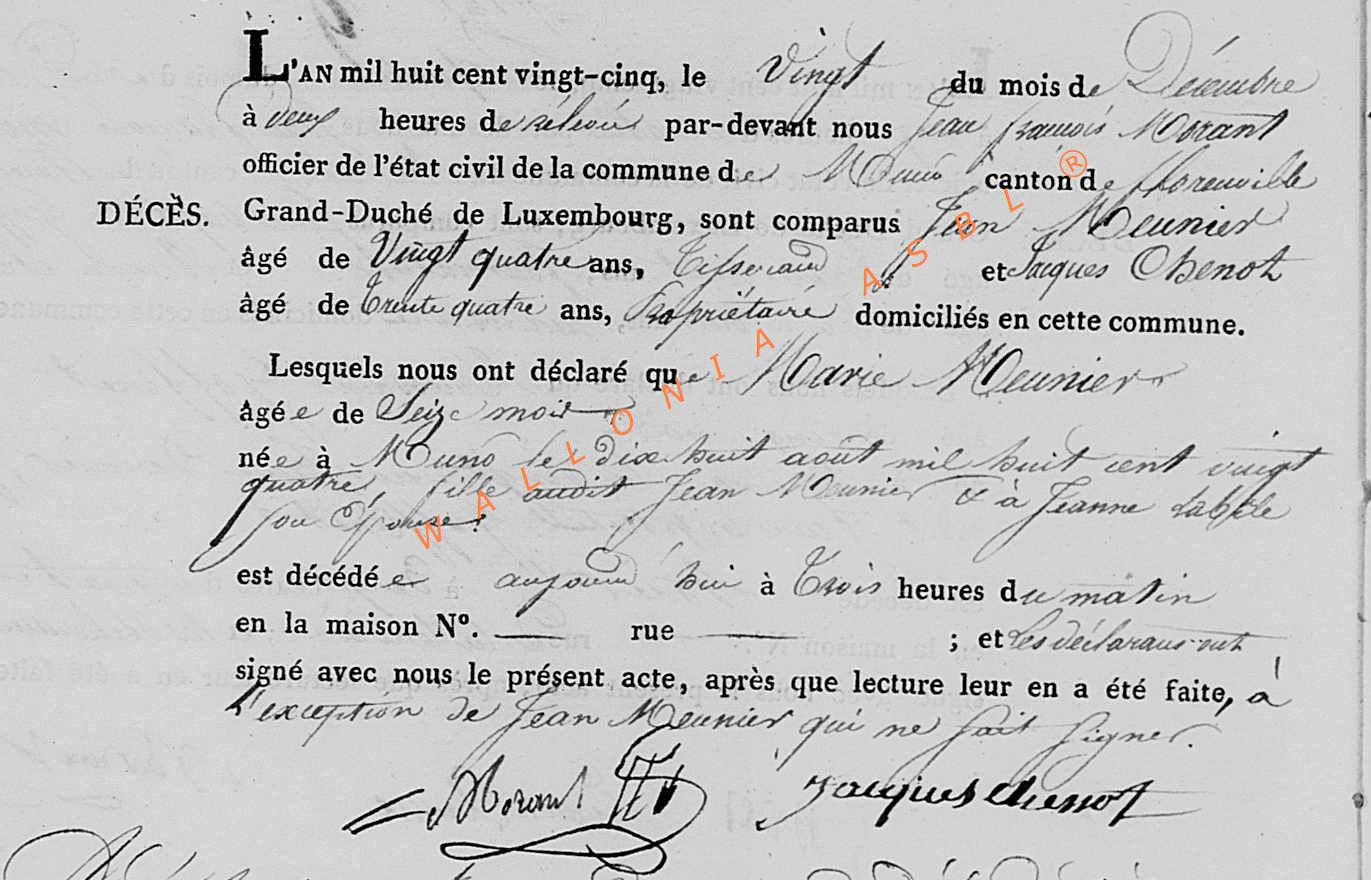 L'AN mil huit cent vingt-cinq, le Vingt du mois de Décembre
à deux heures de relevée par-devant nous Jean françois Morant
officier de l'état civil de la commune de Muno canton de florenville
DÉCÈS. Grand-Duché de Luxembourg, sont comparus Jean Meunier
âgé de Vingt quatre ans, Tisserand et Jacques Chenot
âgé de trente quatre ans, Propriétaire domiciliés en cette commune.
Lesquels nous ont déclaré que Marie Meunier
âgée de Seize mois
née à Muno le dix huit août mil huit cent vingt
quatre, fille audit Jean Meunier & à Jeanne
son Épouse.
est décédée aujourd'hui à Trois heures du matin
en la maison N°. rue ; et les déclarans ont
signé avec nous le présent acte, après que lecture leur en a été faite, à
l'exception de Jean Meunier qui ne sait signer.
Morant Jacques Chenot
WALLONIA ASBL ®